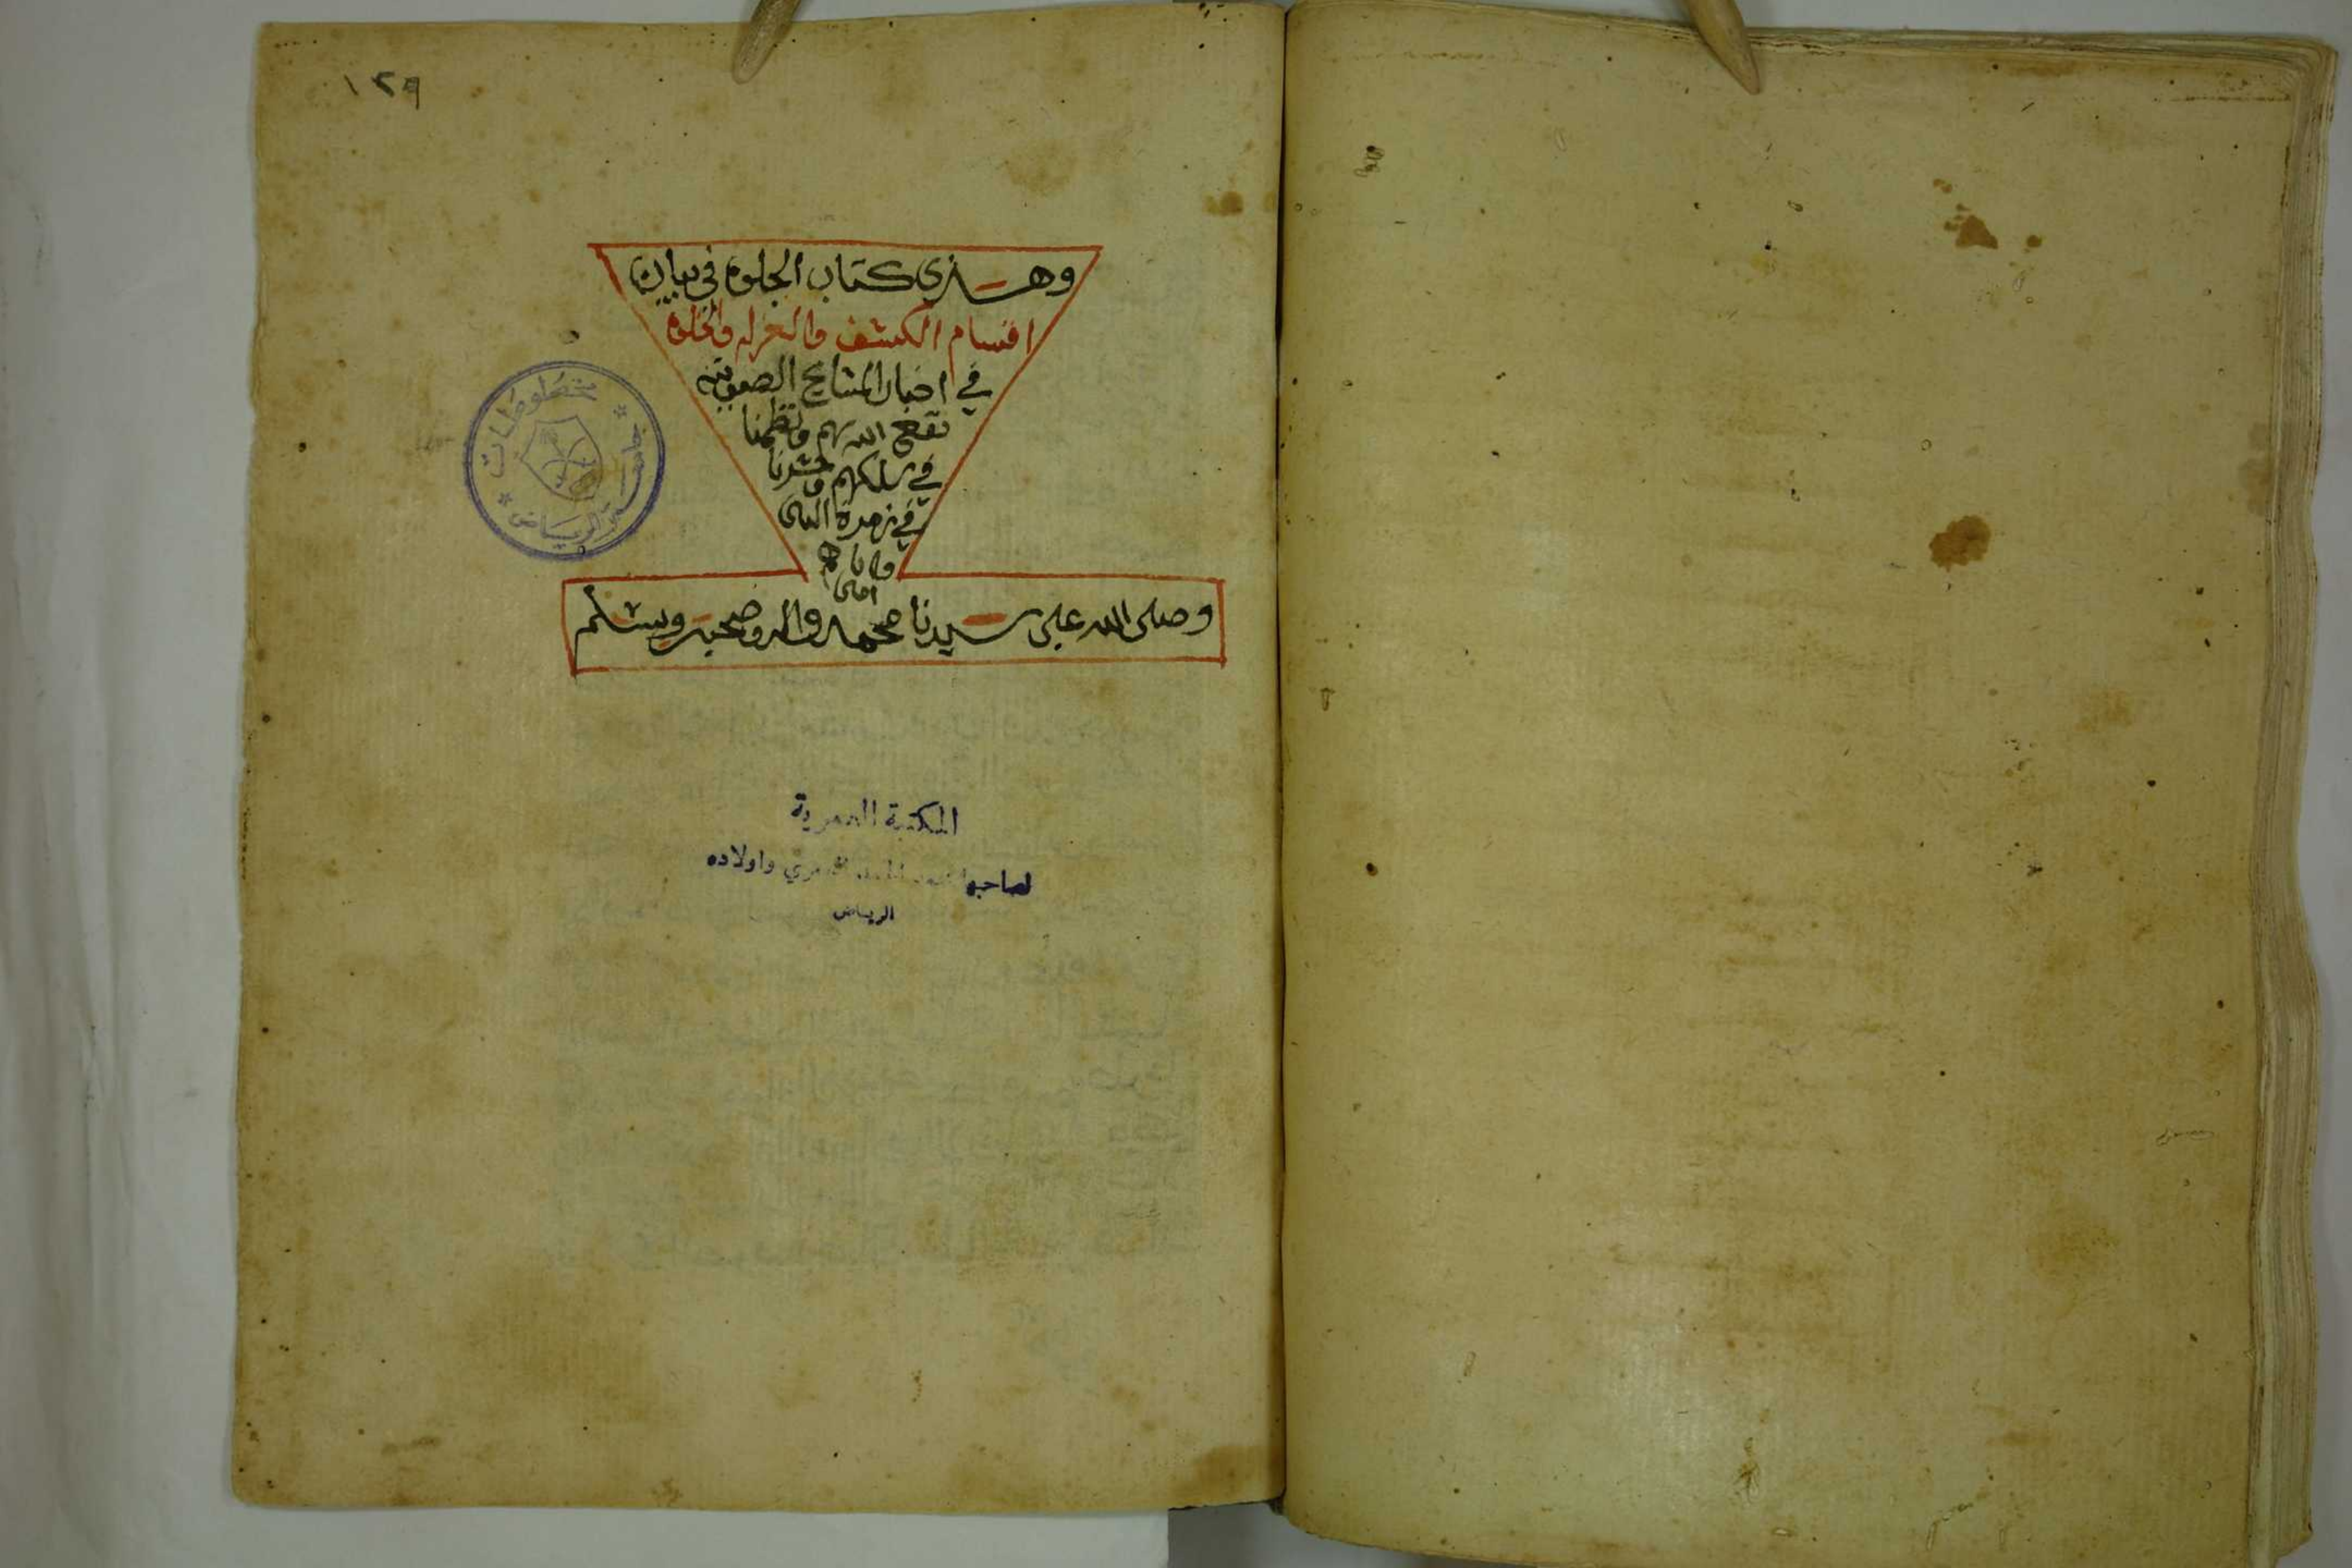 ١٢٩
وهذى كتاب الجلوه فى بيان
اقسام الكشف والعزله والخلوه
في اخبار المشايخ الصوفيه
نفع الله بهم ونظمنا
في سلكهم وحشرنا
في زمرة النبى
واياهم
امين
وصلى الله على سيدنا محمد واله وصحبه وسلم
مخطوطات
الرياض
المكتبة العمرية
لصاحبها واولاده
الرياض